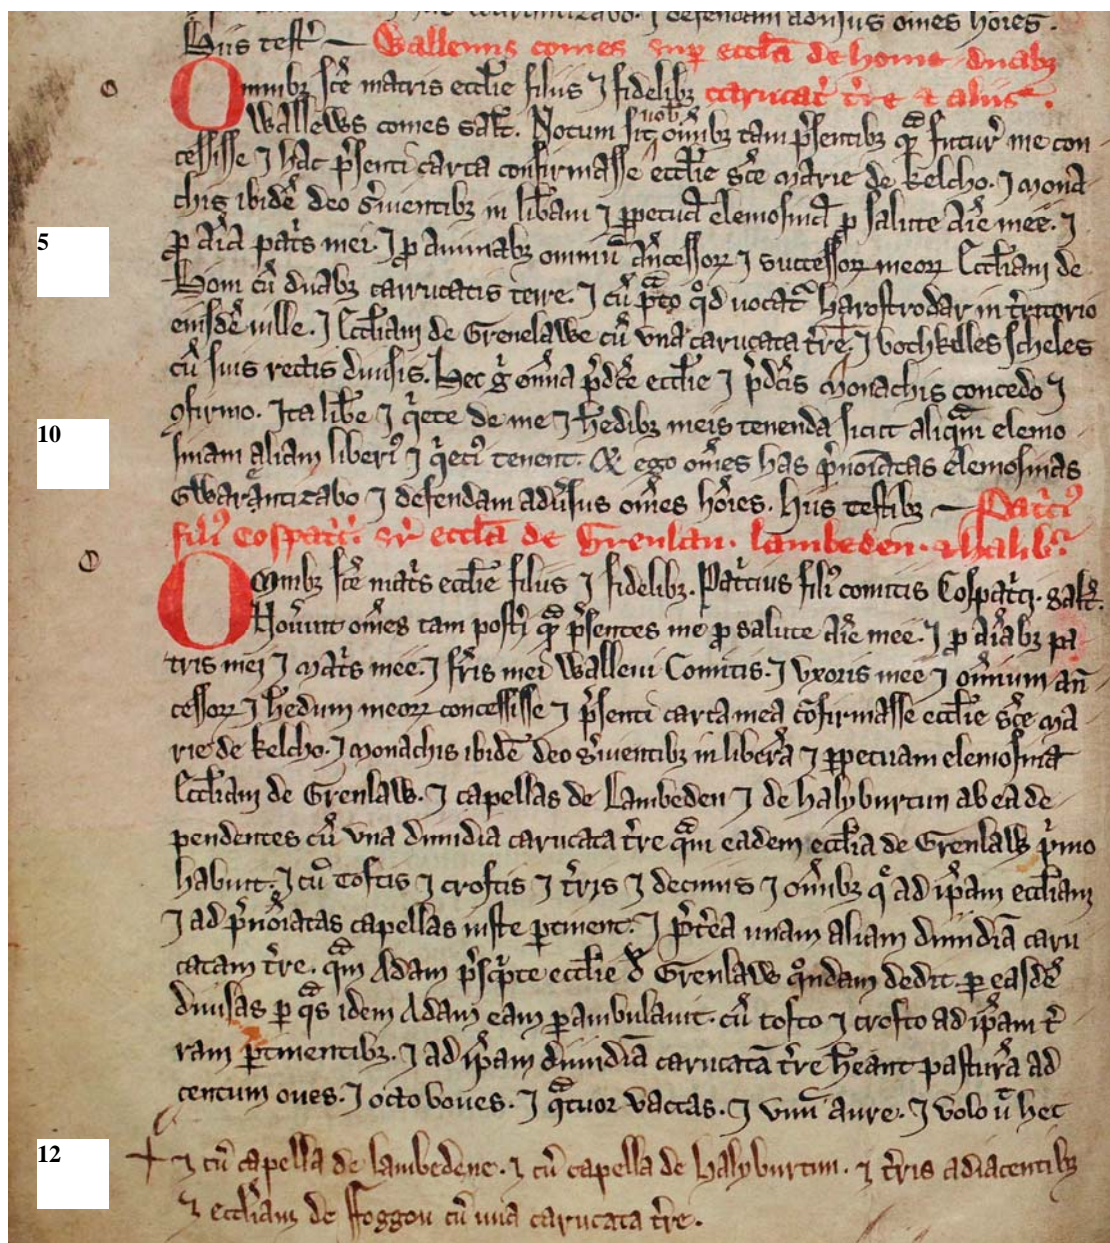 Hiis testˀ — Wallevus comes sup̱ eccłam de home duabȝ
Omnibȝ sc̄e matris ecctie filiis ⁊ fidelibȝ carucat̉ t̉re ⁊ aliis.
Wallews comes sałt. Notum sit uob̉ om̄ibȝ tam p̉sentibȝ qᵃ̄ᵈ futur̉ me con
cessisse ⁊ hac p̉senti carta confirmasse ecctie sc̄e marie de kelcho. ⁊ monac
5
his ibidē deo s̉uientibȝ in lib̉am ⁊ ꝑpetuā elemosinā ꝓ salute aīe mee. ⁊
ꝓ aīa pat̉s mei. ⁊ ꝓ animabȝ omniū an̄cessoꝝ ⁊ successoꝝ meoꝝ Ecctiam de
Hom cū duabȝ carrucatis terre. ⁊ cū p̉to qͦd uocatᷣ harostrodar in t̉ritorio
eiusdē uille. ⁊ Ecctiam de Grenelawe cū vna carucata t̉re. ⁊ bothkilles scheles
cū suis rectis diuisis. Hec gͥ om̄ia p̉dc̄e ecctie ⁊ p̉dc̄is monachis concedo ⁊
10
ꝯfirmo. Ita lib̉e ⁊ qͥete de me ⁊ h̉edibȝ meis tenenda sicut aliqᵃm elemo
sinam aliam liberiꝰ ⁊ qͥeciꝰ tenent. Et ego om̄es has p̉noīatas elemosinas
Gwarantizabo ⁊ defendam adūsus om̄es hōies. Hiis testibȝ — Pat̉ciꝰ
filiꝰ Cospat̉ci. sr̉ ecctā de Grenlau. lambeden. ⁊ halib̉.
Omnibȝ sc̄e mat̉s ecctie filiis ⁊ fidelibȝ. Pat̉cius filiꝰ comitis Cospat̉ci. Sałt.
Noủint om̄es tam post̉i qᵃ̄ p̉sentes me ꝓ salute aīe mee. ⁊ ꝓ aīabȝ pa
tris mei ⁊ mat̉s mee. ⁊ fr̄is mei Walleui Comitis. ⁊ vxoris mee ⁊ om̄ium an̄
cessoꝝ ⁊ h̉edum meoꝝ concessisse ⁊ p̉senti carta mea cōfirmasse ecctie sc̄e ma
rie de kelcho. ⁊ monachis ibidē deo s̉uientibȝ in liberā ⁊ ꝑpetuam elemosinā
Ecctiam de Grenlaw. ⁊ capellas de Lambeden ⁊ de halyburtun ab ea de
pendentes cū vna dimidia carucata t̉re qᵃm eadem ecctia de Grenlaw pͥmo
habuit. ⁊ cū toftis ⁊ croftis ⁊ t̉ris ⁊ decimis ⁊ om̄ibȝ q̄ ad ip̄am ecctiam
⁊ ad p̉noīatas capellas iuste ꝑtinent. ⁊ p̉t̉ea unam aliam dimidiā caru
catam t̉re. qᵃm Adam p̉scͥpte ecctie đ Grenlaw qͦndam dedit. ꝑ easdē
diuisas ꝑ qᵃs idem Adam eam ꝑambulauit. cū tofto ⁊ crofto ad ip̄am t̉
ram ꝑtinentibȝ. ⁊ ad ip̄am dimidiā carucatā t̉re h̄eant pasturā ad
centum oues. ⁊ octo boues. ⁊ qᵃtuor vaccas. ⁊ vnū aủre. ⁊ volo ū hec
12
⁊ cū capella de lambedene. ⁊ cū capella de halyburtun. ⁊ t̉ris adiacentibȝ
⁊ ecctiam de ffoggou cū una carucata t̉re.